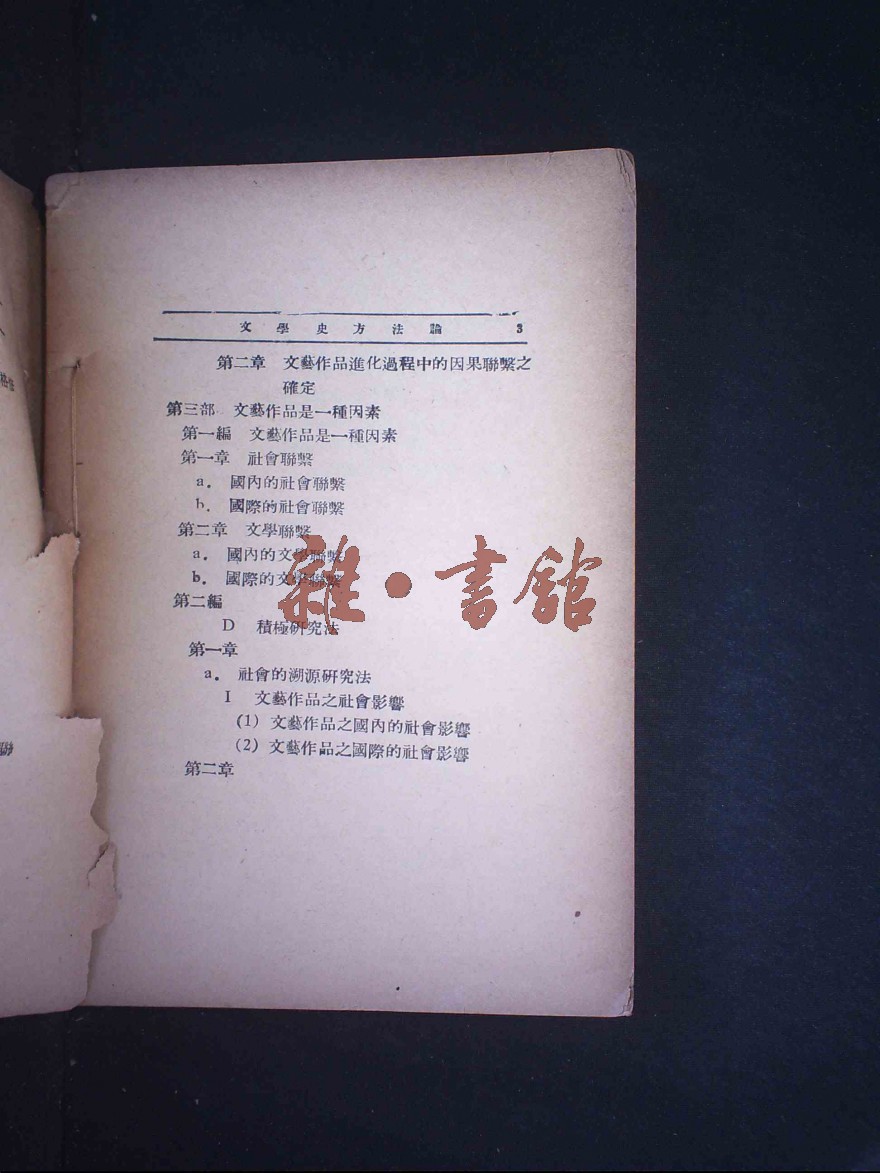 文學史方法論 3
第二章 文藝作品進化過程中的因果聯繫之
確定
第三部 文藝作品是一種因素
第一編 文藝作品是一種因素
第一章 社會聯繫
a. 國內的社會聯繫
b. 國際的社會聯繫
第二章 文學聯繫
a. 國內的文學聯繫
b. 國際的文學聯繫
第二編
D 積極研究法
第一章
a. 社會的溯源研究法
I 文藝作品之社會影響
(1) 文藝作品之國內的社會影響
(2) 文藝作品之國際的社會影響
第二章
雜·書館